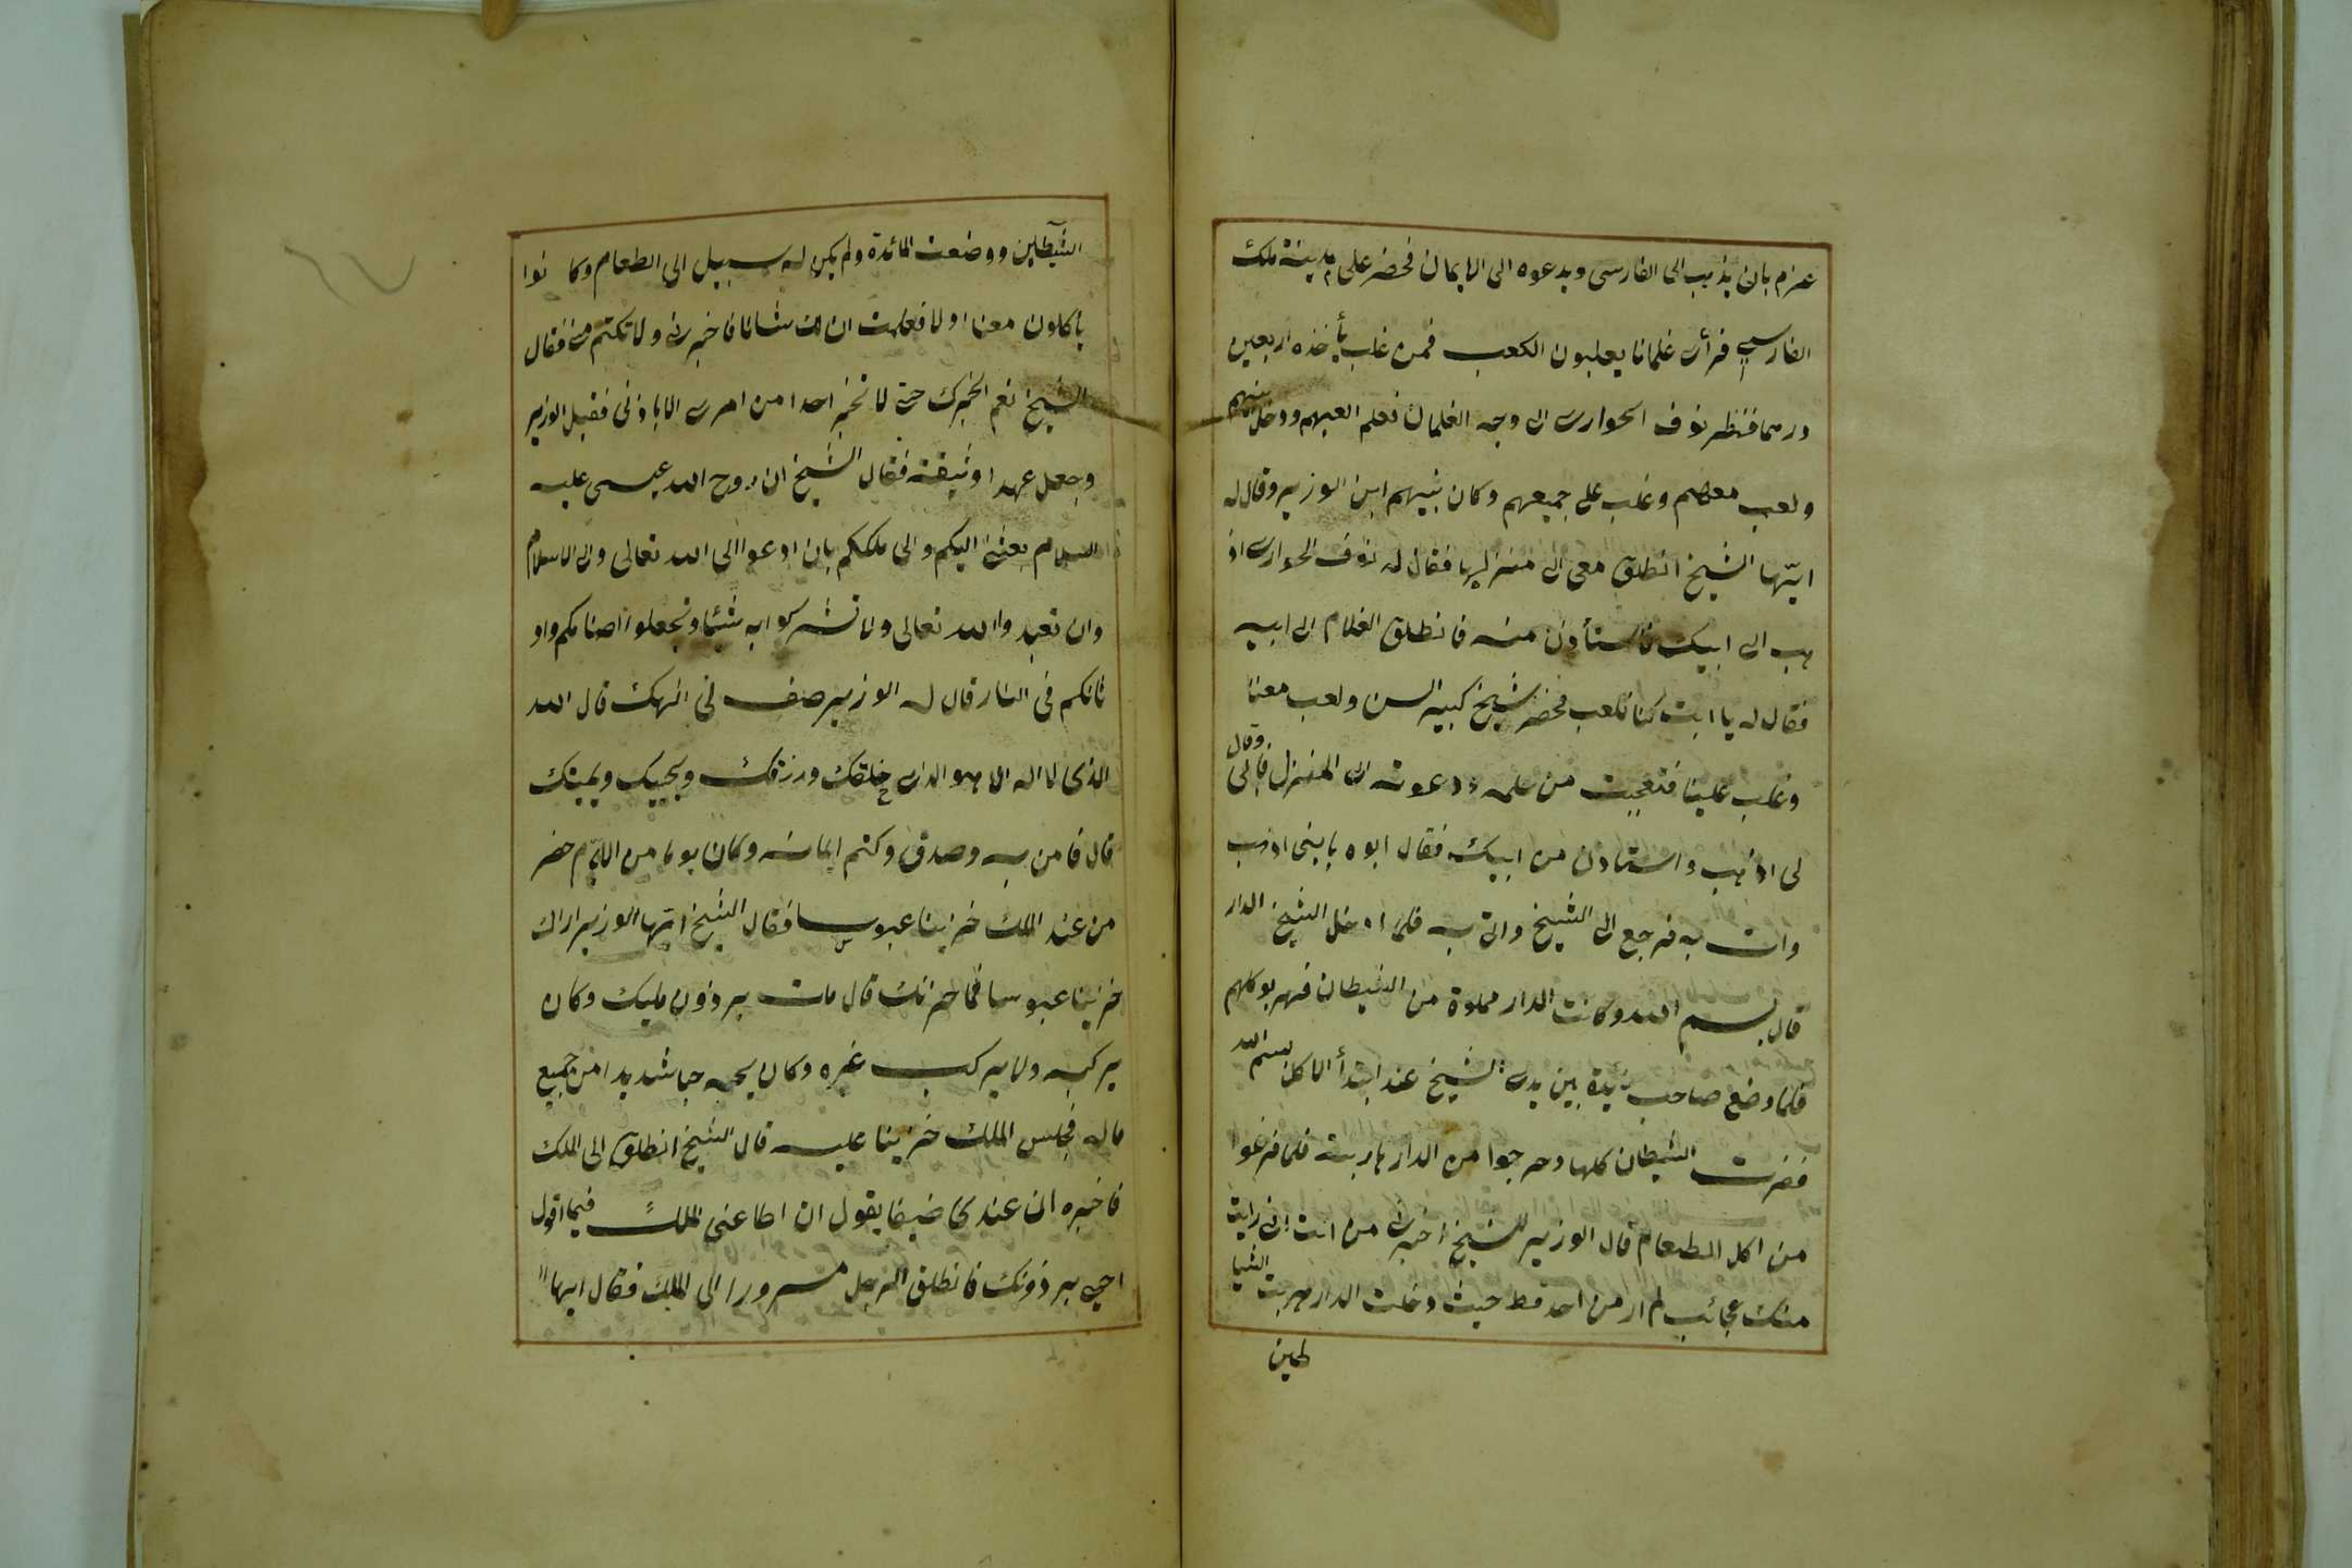 عزم بان يذهب الى الفارسى ويدعوه الى الايمان فحضر على مدينة ملك
الفارسى فرأى غلمانا يعلبون الكعب فمن غلب يأخذه اربعين
درهما فنظر نوف الحوارى الى وجه الغلمان فعلم العبهم ودخل بينهم
ولعب معهم وغلب على جميعهم وكان بينهم ابن الوزير وقال له
ايتها الشيخ انطلق معى الى منزلى فقال له نوف الحوارى اذ
هب الى ابيك فاستأذن منه فانطلق الغلام الى ابيه
فقال له يا ابت كنا نلعب فحضر شيخ كبير السن ولعب معنا
وغلب علينا فتعجبت من علمه ودعوته الى المنزل فابى وقال
لى اذهب واستاذن من ابيك فقال ابوه يا بنى اذهب
وات به فرجع الى الشيخ واتى به فلما ادخل الشيخ الدار
قال بسم الله وكانت الدار مملوة من الشيطان فهربو كلهم
فلما وضع صاحب بين يدى الشيخ عند ابتدأ الاكل بسم الله
ففرت الشيطان كلها وخرجوا من الدار هاربة فلما فرغوا
من اكل الطعام قال الوزير للشيخ اخبرنى من انت انى رايت
منك عجائب لم ار من احد قط حيث دخلت الدار هربت الشيا
طين
الشيطاين ووضعت المائدة ولم يكن له سبيل الى الطعام وكانوا
يأكلون معنا اولا فعلمت ان لك شانا فاخبرنى ولا تكتم منى فقال
الشيخ نعم اخبرك حتى لا تخبر احدا من امرى الا باذنى فقبل الوزير
وجعل عهدا وثيقة فقال الشيخ ان روح الله عيسى عليه
السلام بعثنى اليكم والى ملككم بان ادعوا الى الله تعالى والى الاسلام
وان تعبدوا الله تعالى ولا تشركوا به شيئا وتجعلوا اصنامكم واو
ثانكم فى النار قال له الوزير صف لى الهك قال الله
الذى لا اله الا هو الذى خلقك ورزقك ويحييك ويميتك
قال فامن به وصدق وكتم ايمانه وكان يوما من الايام حضر
من عند الملك حزينا عبوسا فقال الشيخ ايتها الوزير اراك
حزينا عبوسا فما حزنك قال مات برذون مليك وكان
يركبه ولا يركب غيره وكان يحبه حبا شديدا من جميع
ماله فجلس الملك حزينا عليه قال الشيخ انطلق الى الملك
فاخبره ان عندى ضيفا يقول ان اطاعنى الملك فيما اقول
احيى برذونك فانطلق الرجل مسرورا الى الملك فقال ايها